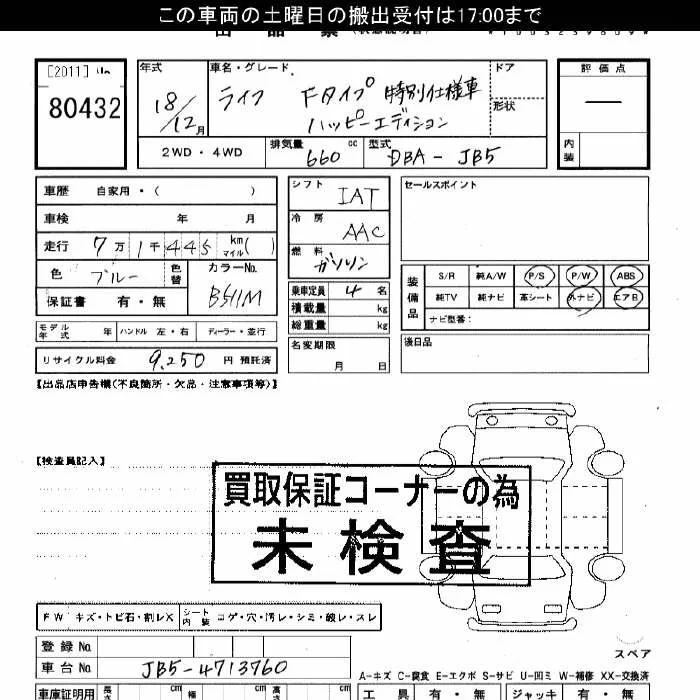 この車両の土曜日の搬出受付は17:00まで
[2011]
80432
年式
18/12月
車名・グレード
ライフ Fタイプ 特別仕様車
ハッピーエディション
ドア
形状
評価点
—
内装
2WD・4WD
排気量 660 cc
型式 DBA-JB5
車歴 自家用・( )
車検 年 月
走行 7万1千445 km マイル( )
色 ブルー
色替
カラーNo. B511M
保証書 有・無
モデル年式 年
ハンドル 左・右
ディーラー・並行
リサイクル料金 9,250 円 預託済
シフト IAT
冷房 AAC
燃料 ガソリン
乗車定員 4 名
積載量 kg
総重量 kg
名変期限
月 日
セールスポイント
装備品
S/R 純A/W P/S P/W ABS
純TV 純ナビ 革シート 外ナビ エアB
ナビ型番:
後日品
【出品店申告欄(不良箇所・欠品・注意事項等)】
【検査員記入】
買取保証コーナーの為
未検査
FW キズ・トビ石・割レX
シート内装 コゲ・穴・汚レ・シミ・破レ・スレ
登録No.
車台No. JB5-4713760
スペア
A-キズ C-腐食 E-エクボ S-サビ U-凹ミ W-補修 XX-交換済
車庫証明用 長さ cm 幅 cm 高さ cm
工具 有・無 ジャッキ 有・無